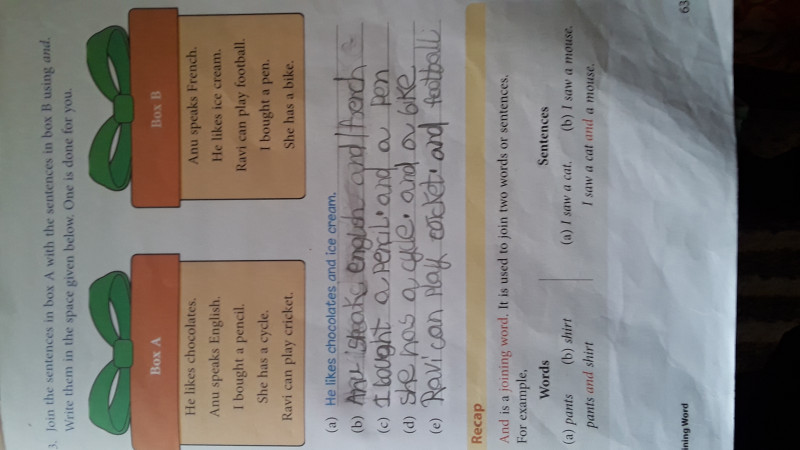 3. Join the sentences in box A with the sentences in box B using and.
Write them in the space given below. One is done for you.
Box A
He likes chocolates.
Anu speaks English.
I bought a pencil.
She has a cycle.
Ravi can play cricket.
Box B
Anu speaks French.
He likes ice cream.
Ravi can play football.
I bought a pen.
She has a bike.
(a) He likes chocolates and ice cream.
(b) Anu english and french
(c) I bought a pencil. and a pen
(d) she has a cycle. and a bike
(e) Ravi can play and football
Recap
And is a joining word. It is used to join two words or sentences.
For example,
Words
(a) pants (b) shirt
pants and shirt
Sentences
(a) I saw a cat. (b) I saw a mouse.
I saw a cat and a mouse.
ining Word
63